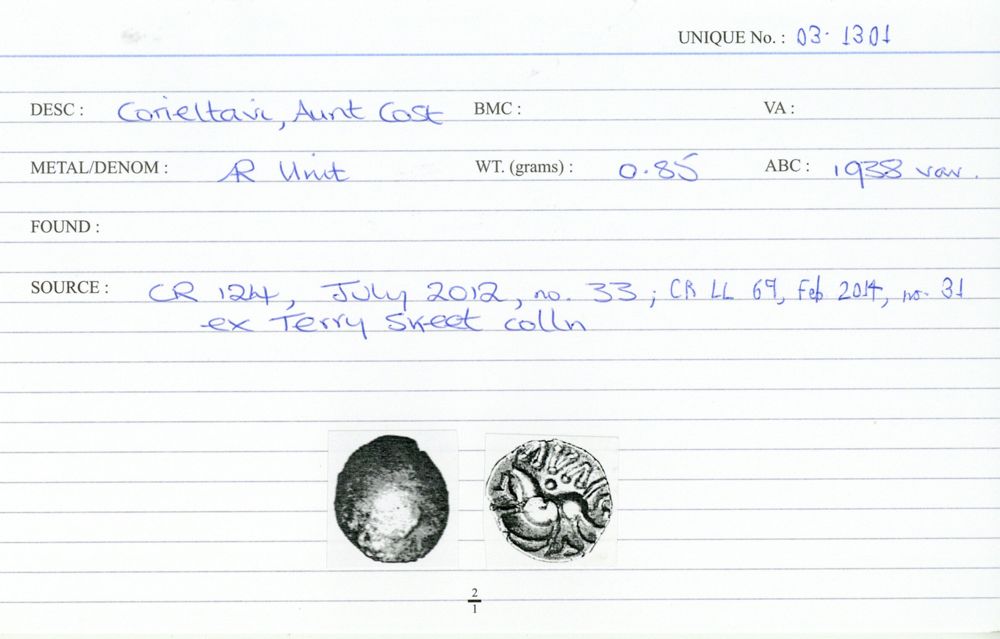 UNIQUE No. : 03· 1301
DESC : Corieltavi, Aunt Cost BMC : VA :
METAL/DENOM : AR Unit WT. (grams) : 0.85 ABC : 1938 var.
FOUND :
SOURCE : CR 124, July 2012, no. 33 ; CR LL 69, Feb 2014, no. 31
ex Terry Skeet colln
2
1